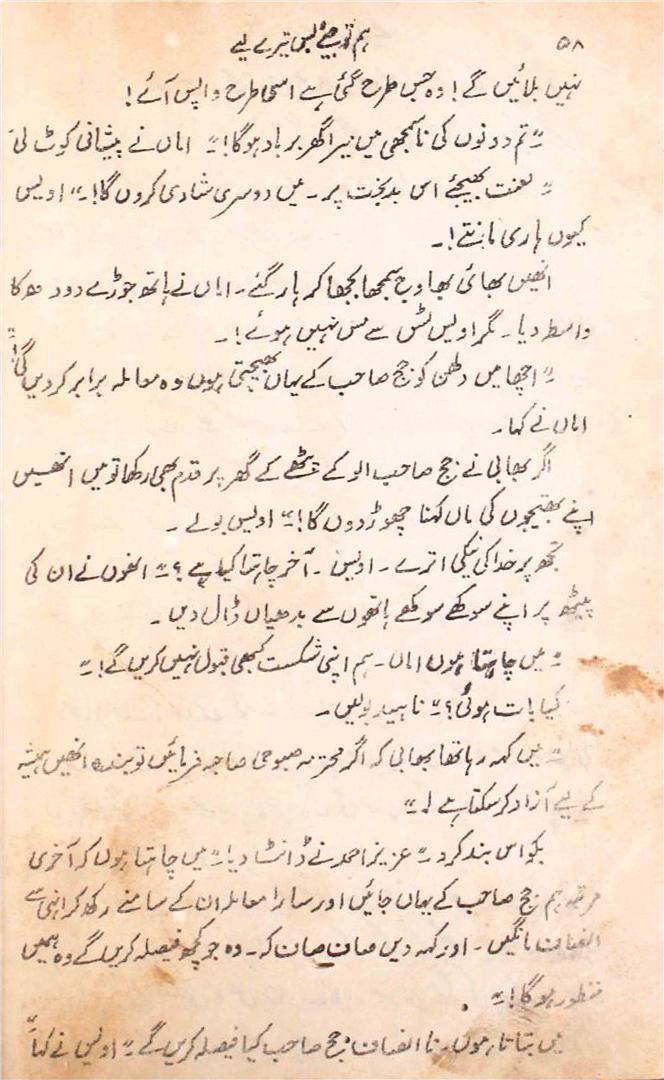 ۵۸
ہم تو جیئے بس تیرے لیے
نہیں بلائیں گے! وہ جس طرح گئی ہے اسی طرح واپس آئے!
"تم دونوں کی ناکجھی میں میرا گھر برباد ہوگا!" اماں نے پیشانی کوٹ لی
"لعنت بھیجئے اس بدبخت پر۔ میں دوسری شادی کروں گا!" اویس
کیوں ہاری مانتے!۔
انھیں بھائی بھاوج سمجھا بجھا کر ہار گئے۔ اماں نے ہاتھ جوڑے دودھ کا
واسطہ دیا۔ مگر اویس ٹس سے مس نہیں ہوئے!۔
"اچھا میں دلھن کو جج صاحب کے یہاں بھیجتی ہوں وہ معاملہ برابر کر دیں گی!"
اماں نے کہا۔
اگر بھابی نے جج صاحب الو کے پٹھے کے گھر پر قدم بھی رکھا تو میں انھیں
اپنے بھتیجوں کی ماں کہنا چھوڑ دوں گا!" اویس بولے۔
تجھ پر خدا کی نیکی اترے۔ اویس۔ آخر چاہتا کیا ہے؟" انھوں نے ان کی
پیٹھ پر اپنے سوکھے سوکھے ہاتھوں سے بدھیاں ڈال دیں۔
"میں چاہتا ہوں اماں۔ ہم اپنی شکست کبھی قبول نہیں کریں گے!"
کیا بات ہوئی؟" ناہید بولیں۔
"میں کہہ رہا تھا بھابی کہ اگر محترمہ صبوحی صاحبہ فرمائیں تو بندہ انھیں ہمیشہ
کے لیے آزاد کر سکتا ہے!"
بکواس بند کرو" عزیز احمد نے ڈانٹ دیا" میں چاہتا ہوں کہ آخری
مرتبہ ہم جج صاحب کے یہاں جائیں اور سارا معاملہ ان کے سامنے رکھ کر انہی سے
انصاف مانگیں۔ اور کہہ دیں صاف صاف کہ۔ وہ جو کچھ فیصلہ کریں گے وہ ہمیں
منظور ہوگا!"
میں بتاتا ہوں۔ نا انصاف جج صاحب کیا فیصلہ کریں گے" اویس نے کہا"